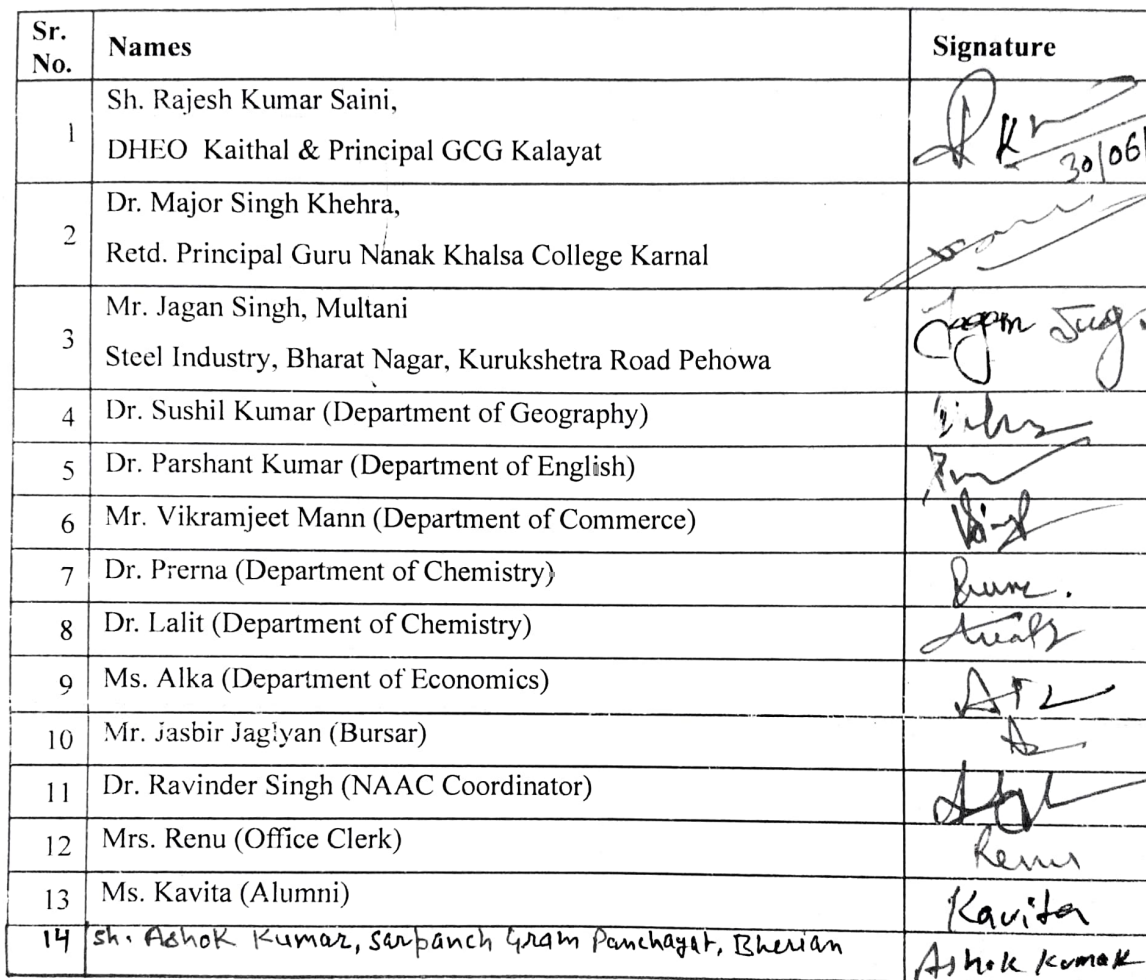 Sr. No. Names Signature
1 Sh. Rajesh Kumar Saini,
DHEO Kaithal & Principal GCG Kalayat
30/06/
2 Dr. Major Singh Khehra,
Retd. Principal Guru Nanak Khalsa College Karnal
3 Mr. Jagan Singh, Multani
Steel Industry, Bharat Nagar, Kurukshetra Road Pehowa
4 Dr. Sushil Kumar (Department of Geography)
5 Dr. Parshant Kumar (Department of English)
6 Mr. Vikramjeet Mann (Department of Commerce)
7 Dr. Prerna (Department of Chemistry)
8 Dr. Lalit (Department of Chemistry)
9 Ms. Alka (Department of Economics)
10 Mr. Jasbir Jaglyan (Bursar)
11 Dr. Ravinder Singh (NAAC Coordinator)
12 Mrs. Renu (Office Clerk) Renu
13 Ms. Kavita (Alumni) Kavita
14 Sh. Ashok Kumar, Sarpanch Gram Panchayat, Bherian Ashok Kumar